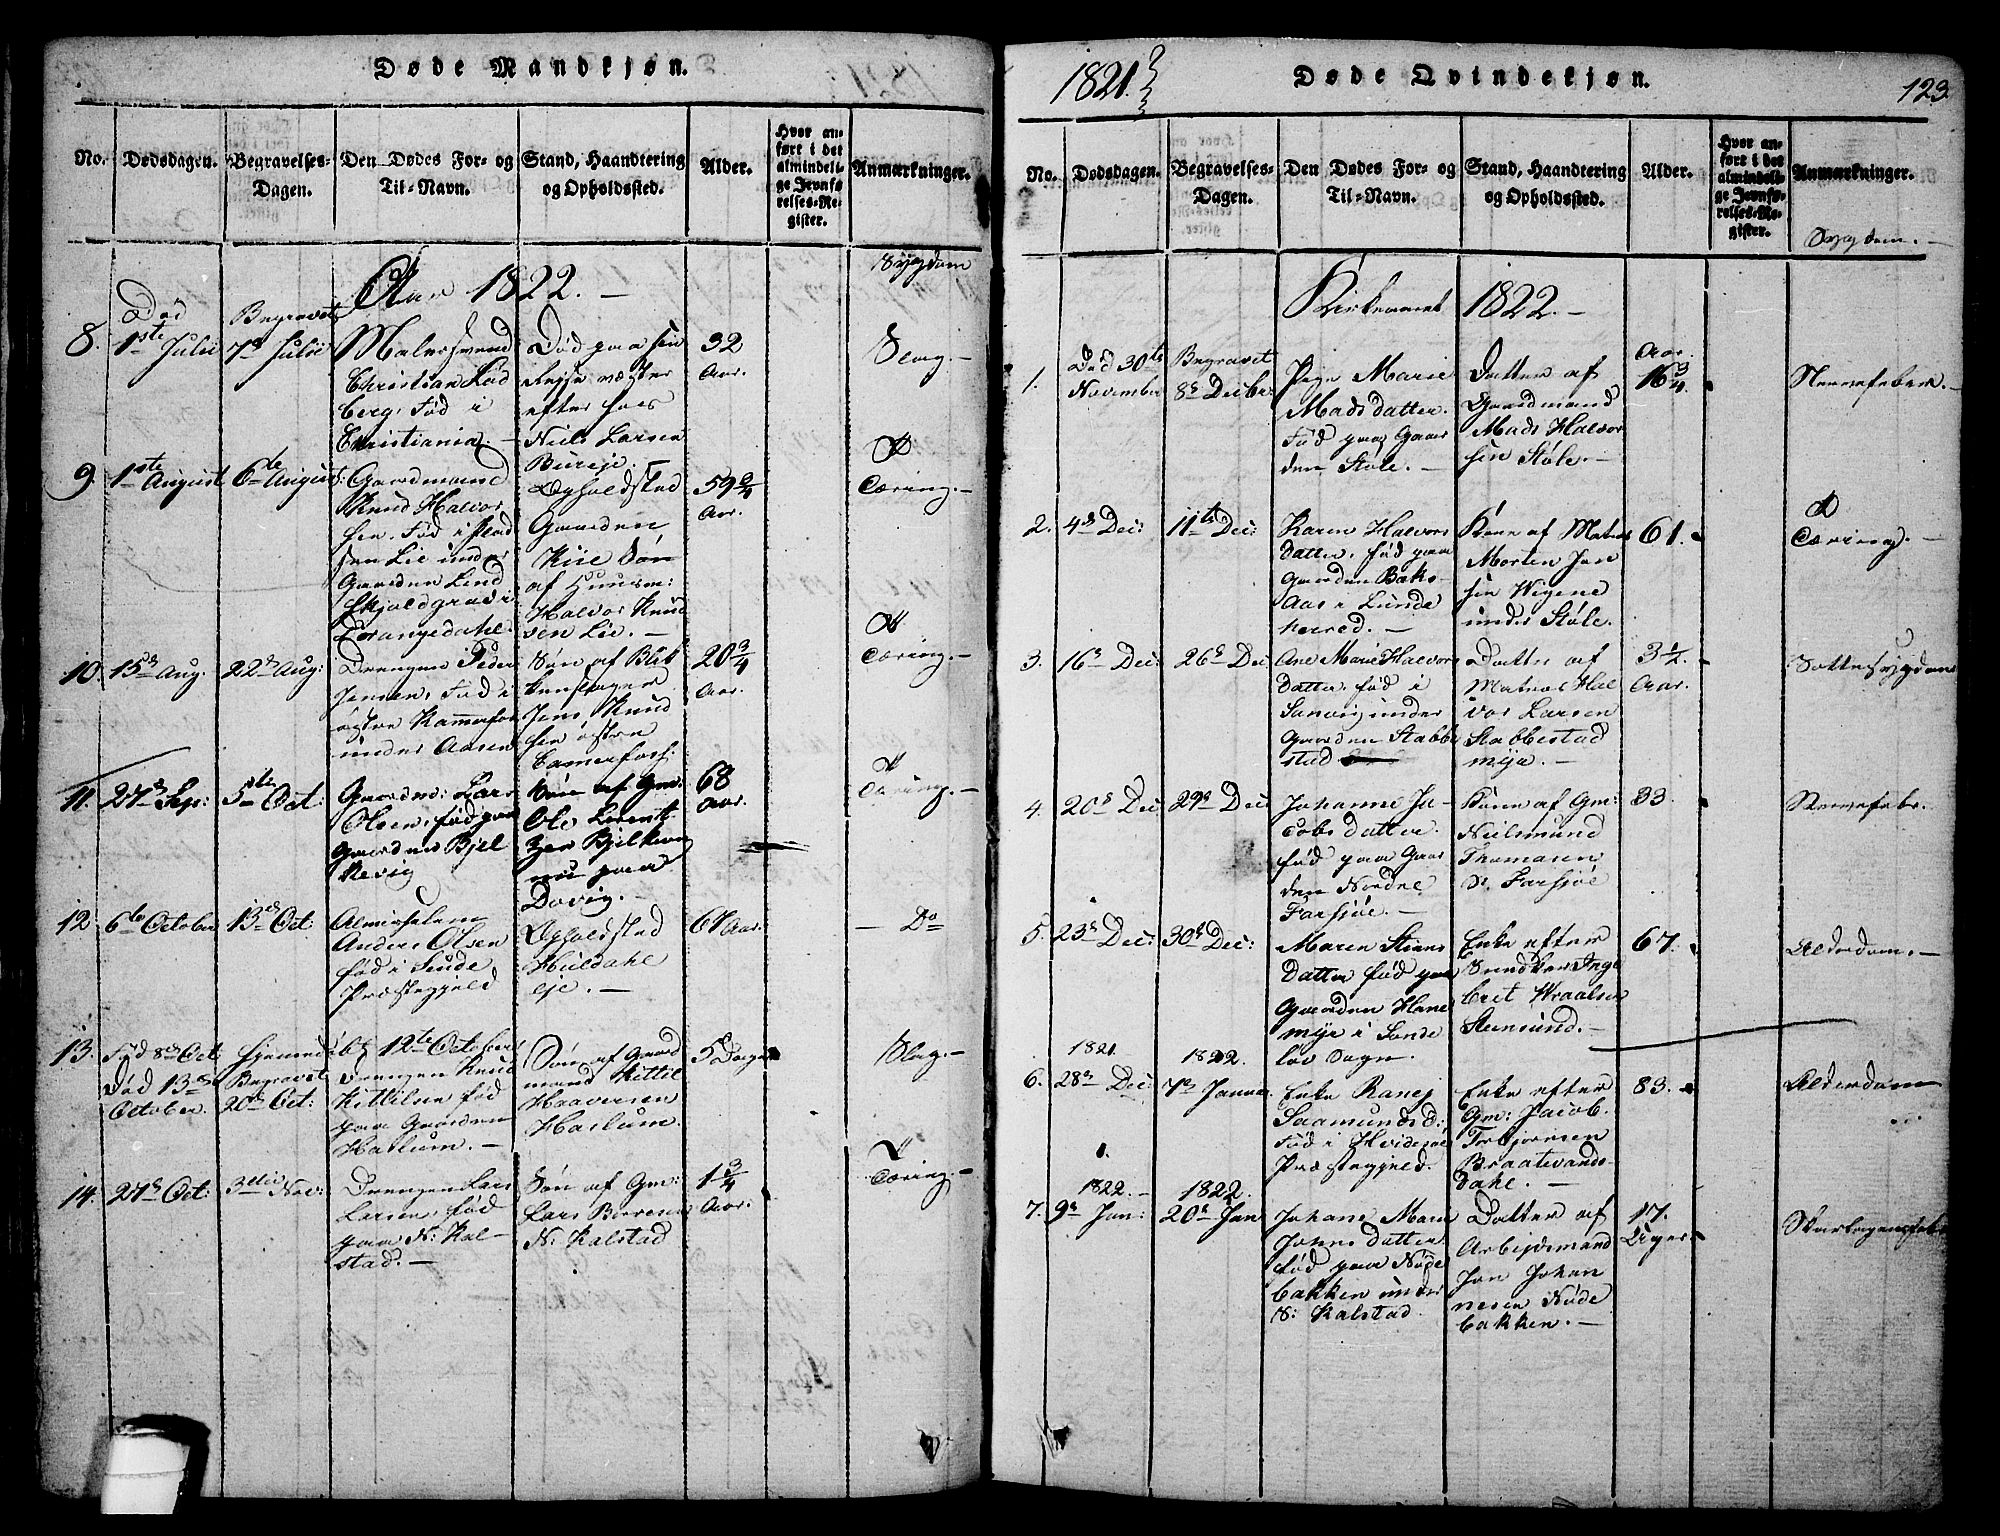 Døde Mandkjøn.
No.
Dødsdagen.
Begravelses-
Dagen.
Den Dødes For- og
Til-Navn.
Stand, Haandtering
og Opholdssted.
Alder.
Hvor an-
ført i det
almindeli-
ge Jevnfø-
relses-Re-
gister.
Anmærkninger.
Sygdom
Aar 1822. -
8.
Død
1ste Julii
Begravet
7d Julii
Malersvend
Christian
berg, Fød i
Christiania. -
Død paa sin
Rejse
efter hos
Niels Larsen
32
Aar.
Slag. -
9.
1ste August
6te August
Gaardmand
Knud Halvor
sen. Fød i
sen Lie under
Gaarden Lind
skjold
Drangedahl.
Opholdsted
Gaarden
Kiie Søn
af Huusm:
Halvor Knud
sen Lie. -
59 3/4
Aar.
Tæring. -
10.
15d Aug.
22d Aug:
Drengen Peder
Jensen, Fød i
østre Kammerfos
under Aasen
Søn af Blik
kenslager
Jens Knud
sen østre
Camerfos:
20 3/4
Aar.
Tæring. -
11.
27d Sep:
5te Oct:
Gaardmd: Lars
Olsen, fød paa
Gaarden Bjel
kevig
Søn af Gm:
Ole Lorent
zen Bjelkevig
nu paa
Dovig. -
68
Aar.
Tæring. -
12.
6te October
13d Oct:
Almisselem
Anders Olsen
fød i
Præstegjeld
Opholdsted
Huldahl
eje. -
61 Aar.
- Do
13.
Fød 8d Oct
Død 13d
October.
Hjemmedøbt 12te October
Begravet
20d Oct:
Drengen Knud
Kittilsen fød
paa Gaarden
Haslum. -
Søn af Gaard
mand Kittil
Haaversen
Haslum.
5 Dage
Slag. -
14.
27d Oct:
3die Nov:
Drengen Lars
Larsen, fød
paa N: Kal-
stad. -
Søn af Gm:
Lars
N: Kalstad
1 3/4
Aar.
Tæring. -
1821.
Døde Qvindekjøn.
123.
No.
Dødsdagen.
Begravelses-
Dagen.
Den Dødes For- og
Til-Navn.
Stand, Haandtering
og Opholdssted.
Alder.
Hvor an-
ført i det
almindeli-
ge Jevnfø-
relses-Re-
gister.
Anmærkninger.
Sygdom. -
Kirkeaaret 1822. -
1.
Død 30te
November
Begravet
8d Decbr:
Pige Marie
Mads datter.
Fød paa Gaar
den Støle. -
Datter af
Gaardmand
Mads Halvor
sen Støle. -
Aar.
16 3/4
Nervefeber. -
2.
4d Dec:
11te Dec:
Karen Halvors
datter, fød paa
Gaarden Baks-
Aas i Lunde
herred. -
Kone af Matros
Morten Jan
sen Wigene
under Støle.
61. -
Tæring. -
3.
16d Dec:
26d Dec
Ane Marie Halvors
Datter, fød i
Sanvig, under
Gaarden Stabbe
stad
Datter af
Matros Hal
vor Larsen
Stabbestad
myr. -
3 1/2.
Aar.
Sottesygdom
4.
20d Dec
29d Dec
Johanne Ja-
cobs datter.
fød paa Gaar
den Nordre
Farsjøe. -
Kone af Gm:
Neilsmund
Thomasen
N. Farsjøe
33.
Nervefeber.
5.
23d Dec:
30d Dec:
Maren Steens
Datter fød paa
Gaarden Hane
myr i Sande
løv Sogn.
Enke efter
Snedker Inge
bret Wraalsen
Steensund. -
67.
Alderdom. -
6.
1821.
28d Dec:
1822.
7d Januar
Enke Ranej
Saamundsd:
Fød i Hvidesøe
Præstegjeld.
Enke efter
Gm: Jacob.
Torbjørnsen
Braatevands-
dahl. -
83.
Alderdom
7.
1822. -
9d Jan:
1822.
20d Jan
Johane Marie
Johns datter
fød paa Nøde
bakken under
N: Kalstad.
Datter af
Arbejdsmand
Jon Johan
nesen Nøde
bakken. -
17.
Uger
Skarlagensfeber